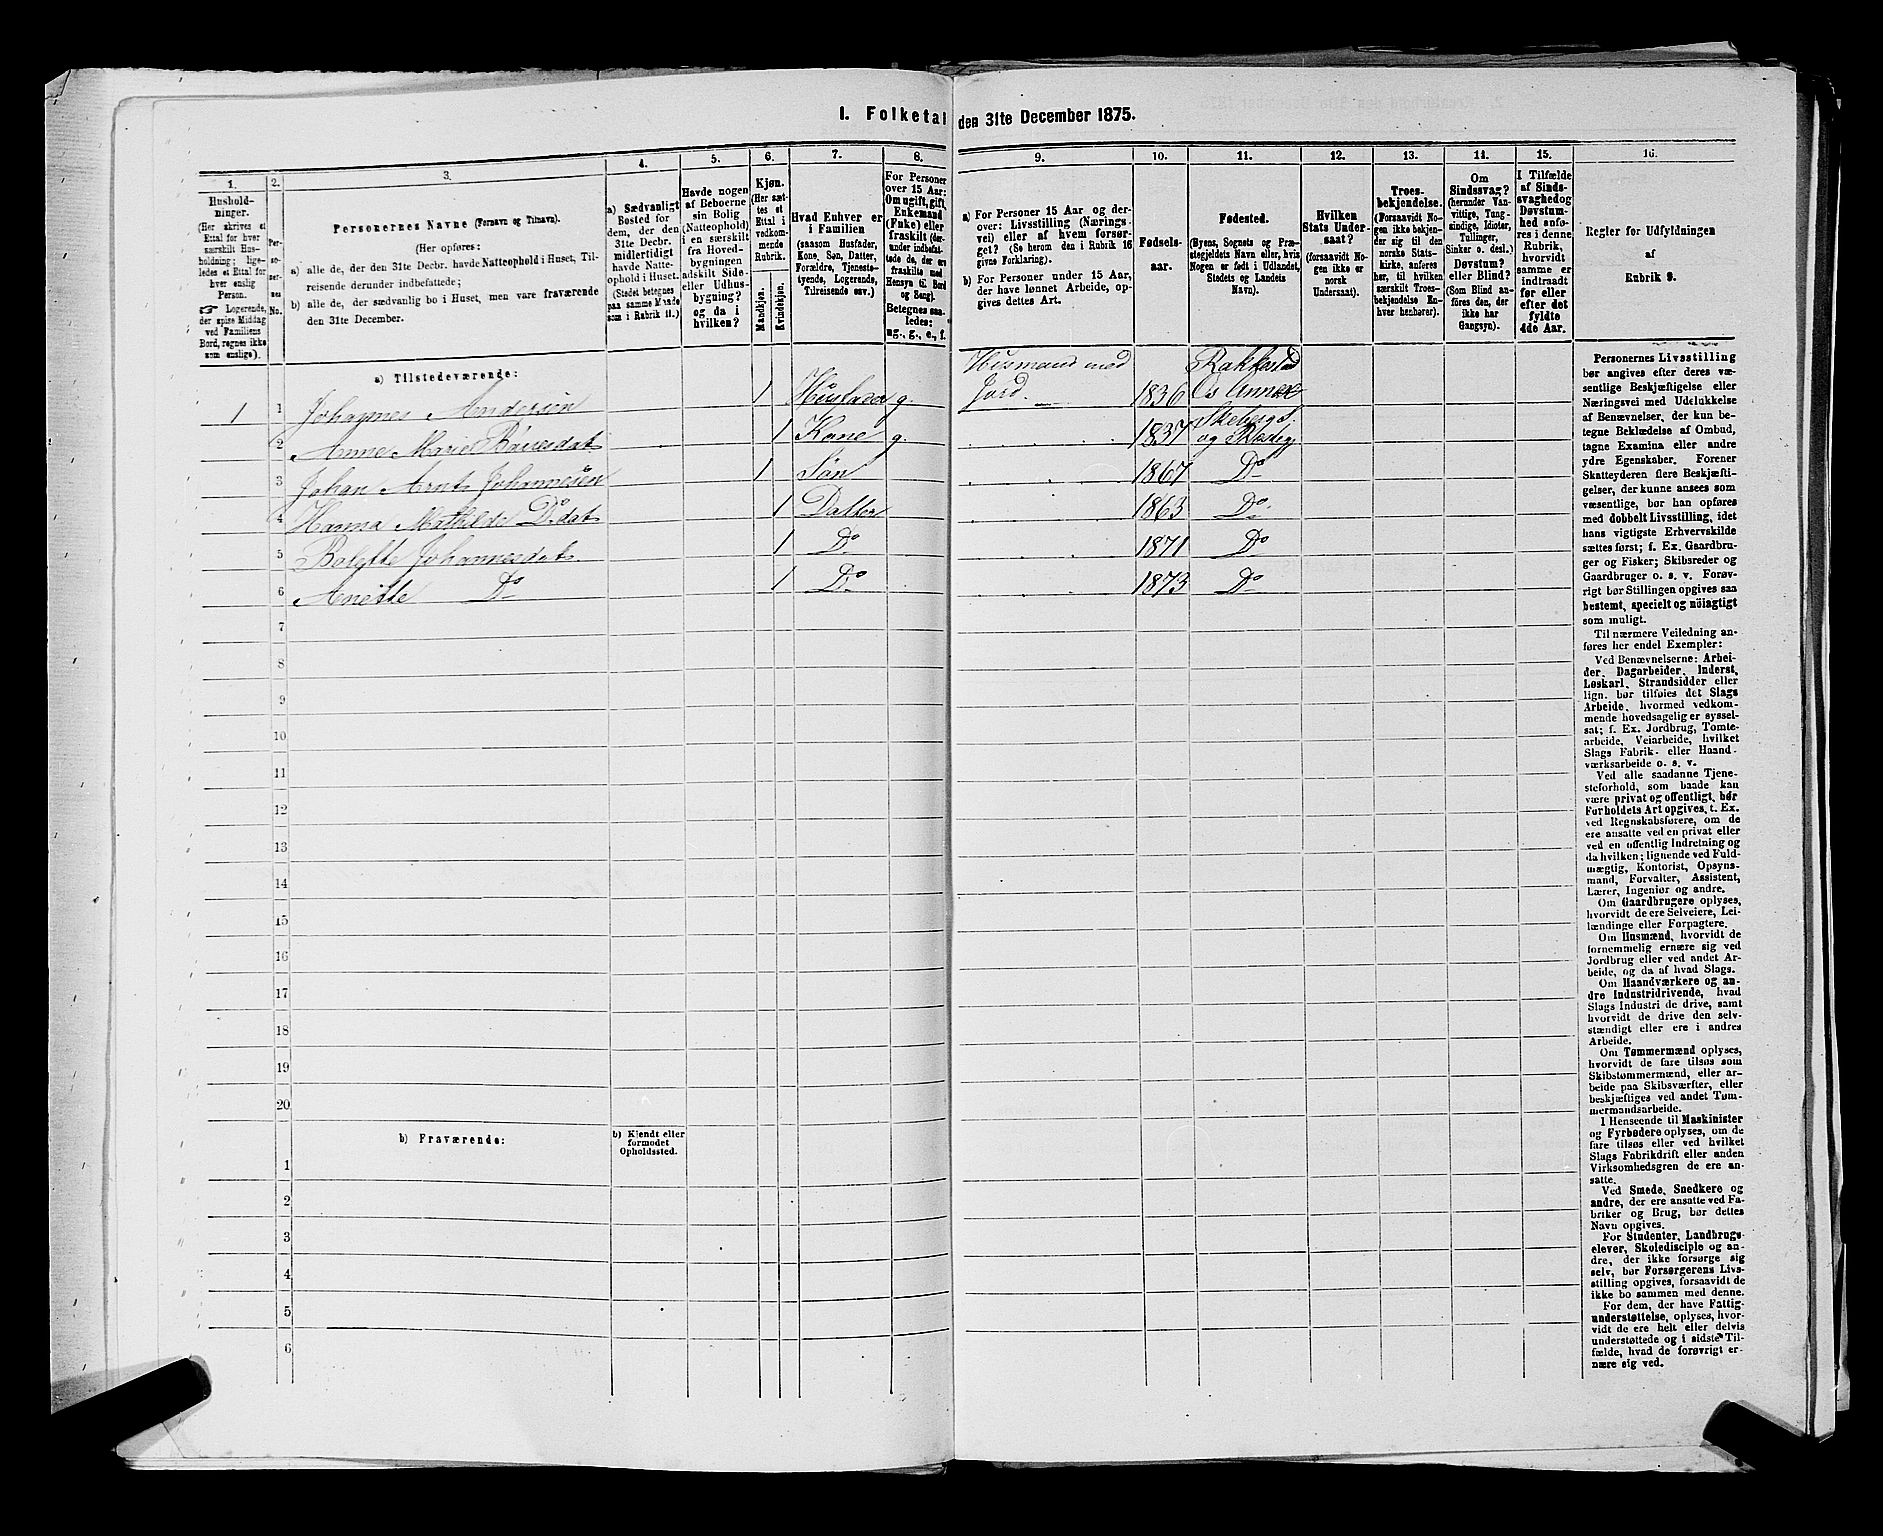 I. Folketal den 31te December 1875.
1. 2. 3. 4. 5. 6. 7. 8. 9. 10. 11. 12. 13. 14. 15. 16.
Hushold-
ninger.
(Her skrives et
Ettal for hver
særskilt Hus-
holdning; lige-
ledes et Ettal for
hver enslig
Person.
☞ Logerende,
der spise Middag
ved Familiens
Bord, regnes ikke
som enslige).
Per-
so-
ner-
nes
No.
Personernes Navne (Fornavn og Tilnavn).
(Her opføres:
a) alle de, der den 31te Decbr. havde Natteophold i Huset, Til-
reisende derunder indbefattede;
b) alle de, der sædvanlig bo i Huset, men vare fraværende
den 31te December.
a) Sædvanligt
Bosted for
dem, der den
31te Decbr.
midlertidigt
havde Natte-
ophold i Huset.
(Stedet betegnes
paa samme Maade
som i Rubrik 11.)
Havde nogen
af Beboerne
sin Bolig
(Natteophold)
i en særskilt
fra Hoved-
bygningen
adskilt Side-
eller Udhus-
bygning?
og da i
hvilken?
Kjøn.
(Her sæt-
tes et
Ettal i
vedkom-
mende
Rubrik.
Mandkjøn.
Kvindekjøn.
Hvad Enhver er
i Familien
(saasom Husfader,
Kone, Søn, Datter,
Forældre, Tjeneste-
tyende, Logerende,
Tilreisende osv.)
For Personer
over 15 Aar:
Om ugift, gift,
Enkemand
(Enke) eller
fraskilt (der-
under indbefat-
tede de, der ere
fraskilte med
Hensyn til Bord
og Seng).
Betegnes saa-
ledes:
ug., g., e., f.
a) For Personer 15 Aar og der-
over: Livsstilling (Nærings-
vei) eller af hvem forsør-
get? (Se herom den i Rubrik 16
givne Forklaring).
b) For Personer under 15 Aar,
der have lønnet Arbeide, op-
gives dettes Art.
Fødsels-
aar.
Fødested.
(Byens, Sognets og Præ-
stegjeldets Navn eller, hvis
Nogen er født i Udlandet,
Stedets og Landets
Navn).
Hvilken
Stats Under-
saat?
(forsaavidt No-
gen ikke er
norsk
Undersaat).
Troes-
bekjendelse.
(Forsaavidt No-
gen ikke bekjen-
der sig til den
norske Stats-
kirke, anføres
her, til hvilken
særskilt Troes-
bekjendelse En-
hver henhører).
Om
Sindssvag?
(herunder Van-
vittige, Tung-
sindige, Idioter,
Tullinger,
Sinker o. desl.)
Døvstum?
eller Blind?
(Som Blind an-
føres den, der
ikke har
Gangsyn).
I Tilfælde
af Sinds-
svaghed og
Døvstum-
hed anfø-
res i denne
Rubrik,
hvorvidt
samme er
indtraadt
før eller
efter det
fyldte
4de Aar.
Regler for Udfyldningen
af
Rubrik 9.
a) Tilstedeværende:
1 1 Johannes Andersen 1 Husfader g. Husmand med Jord. 1836 Rakkestad Os Annex
2 Anne Marie 1 Kone g. 1837 og
3 Johan Arnt Johannesen 1 Søn 1867 Do
4 Mathilde Do dat 1 Datter 1863 Do
5 Johannesdat 1 Do 1871 Do
6 Anette Do 1 Do 1873 Do
7
8
9
10
11
12
13
14
15
16
17
18
19
20
b) Fraværende:
b) Kjendt eller
formodet
Opholdssted.
1
2
3
4
5
6
Personernes Livsstilling
bør angives efter deres væ-
sentlige Beskjæftigelse eller
Næringsvei med Udelukkelse
af Benævnelser, der kun be-
tegne Beklædelse af Ombud,
tagne Examina eller andre
ydre Egenskaber. Forener
Skatteyderen flere Beskjæfti-
gelser, der kunne ansees som
væsentlige, bør han opføres
med dobbelt Livsstilling, idet
hans vigtigste Erhvervskilde
sættes først; f. Ex. Gaardbru-
ger og Fisker; Skibsreder og
Gaardbruger o. s. v. Forøv-
rigt bør Stillingen opgives saa
bestemt, specielt og nöiagtigt
som muligt.
Til nærmere Veiledning an-
føres her endel Exempler:
Ved Benævnelserne: Arbei-
der, Dagarbeider, Inderst,
Løskarl, Strandsidder eller
lign. bør tilføies det Slags
Arbeide, hvormed vedkom-
mende hovedsagelig er syssel-
sat; f. Ex. Jordbrug, Tomte-
arbeide, Veiarbeide, hvilket
Slags Fabrik- eller Haand-
værksarbeide o. s. v.
Ved alle saadanne Tjene-
steforhold, som baade kan
være privat og offentligt, bør
Forholdets Art opgives, t. Ex.
ved Regnskabsførere, om de
ere ansatte ved en privat eller
ved en offentlig Indretning og
da hvilken; lignende ved Fuld-
mægtig, Kontorist, Opsyns-
mand, Forvalter, Assistent,
Lærer, Ingeniør og andre.
Om Gaardbrugere oplyses,
hvorvidt de ere Selveiere, Lei-
lændinge eller Forpagtere.
Om Husmænd, hvorvidt de
fornemmelig ernære sig ved
Jordbrug eller ved andet Ar-
beide, og da af hvad Slags.
Om Haandværkere og an-
dre Industridrivende, hvad
Slags Industri de drive, samt
hvorvidt de drive den selv-
stændigt eller ere i andres
Arbeide.
Om Tømmermænd oplyses,
hvorvidt de fare tilsøs som
Skibstømmermænd, eller ar-
beide paa Skibsværfter, eller
beskjæftiges ved andet Tøm-
mermandsarbeide.
I Henseende til Maskinister
og Fyrbødere oplyses, om de
fare tilsøs eller ved hvilket
Slags Fabrikdrift eller anden
Virksomhedsgren de ere an-
satte.
Ved Smede, Snedkere og
andre, der ere ansatte ved Fa-
briker og Brug, bør dettes
Navn opgives.
For Studenter, Landbrugs-
elever, Skoledisciple og an-
dre, der ikke forsørge sig
selv, bør Forsørgerens Livs-
stilling opgives, forsaavidt de
ikke bo sammen med denne.
For dem, der have Fattig-
understøttelse, oplyses, hvor-
vidt de ere helt eller delvis
understøttede og i sidste Til-
fælde, hvad de forøvrigt er-
nære sig ved.